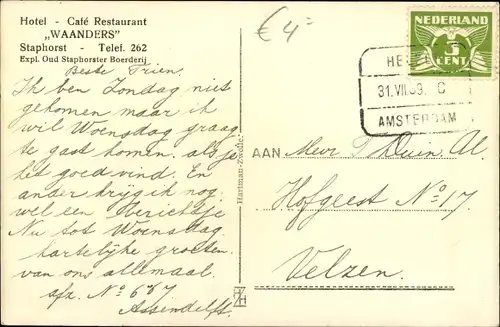 Hotel - Café Restaurant
„WAANDERS"
Staphorst - Telef. 262
Expl. Oud Staphorster Boerderij
Beste Trien.
Ik ben Zondag niet
gekomen maar ik
wil Woensdag graag
te gast komen. als je
het goed vind. En
ander krijg ik nog
wel een berichtje
Nu tot Woensdag
hartelijke groeten
van ons allemaal.
afz. No 677
Assendelft.
Hartman-Zwolle.
€4=
NEDERLAND
3
CENT
31.VII.39. C
AMSTERDAM
AAN Mevr
Hofgeest No 17.
Velzen.